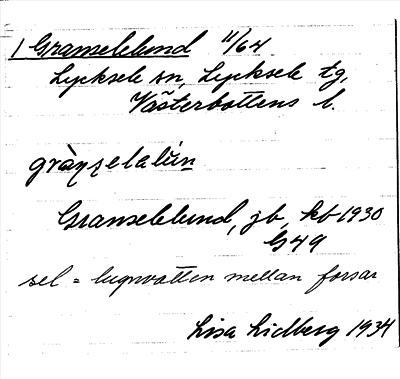 1 Granselelund 11/64
Lycksele sn, Lycksele tg,
Västerbottens l.
Granselelund, jb, kb 1930
G49
sel = lugnvatten mellan forsar
Lisa Lidberg 1934